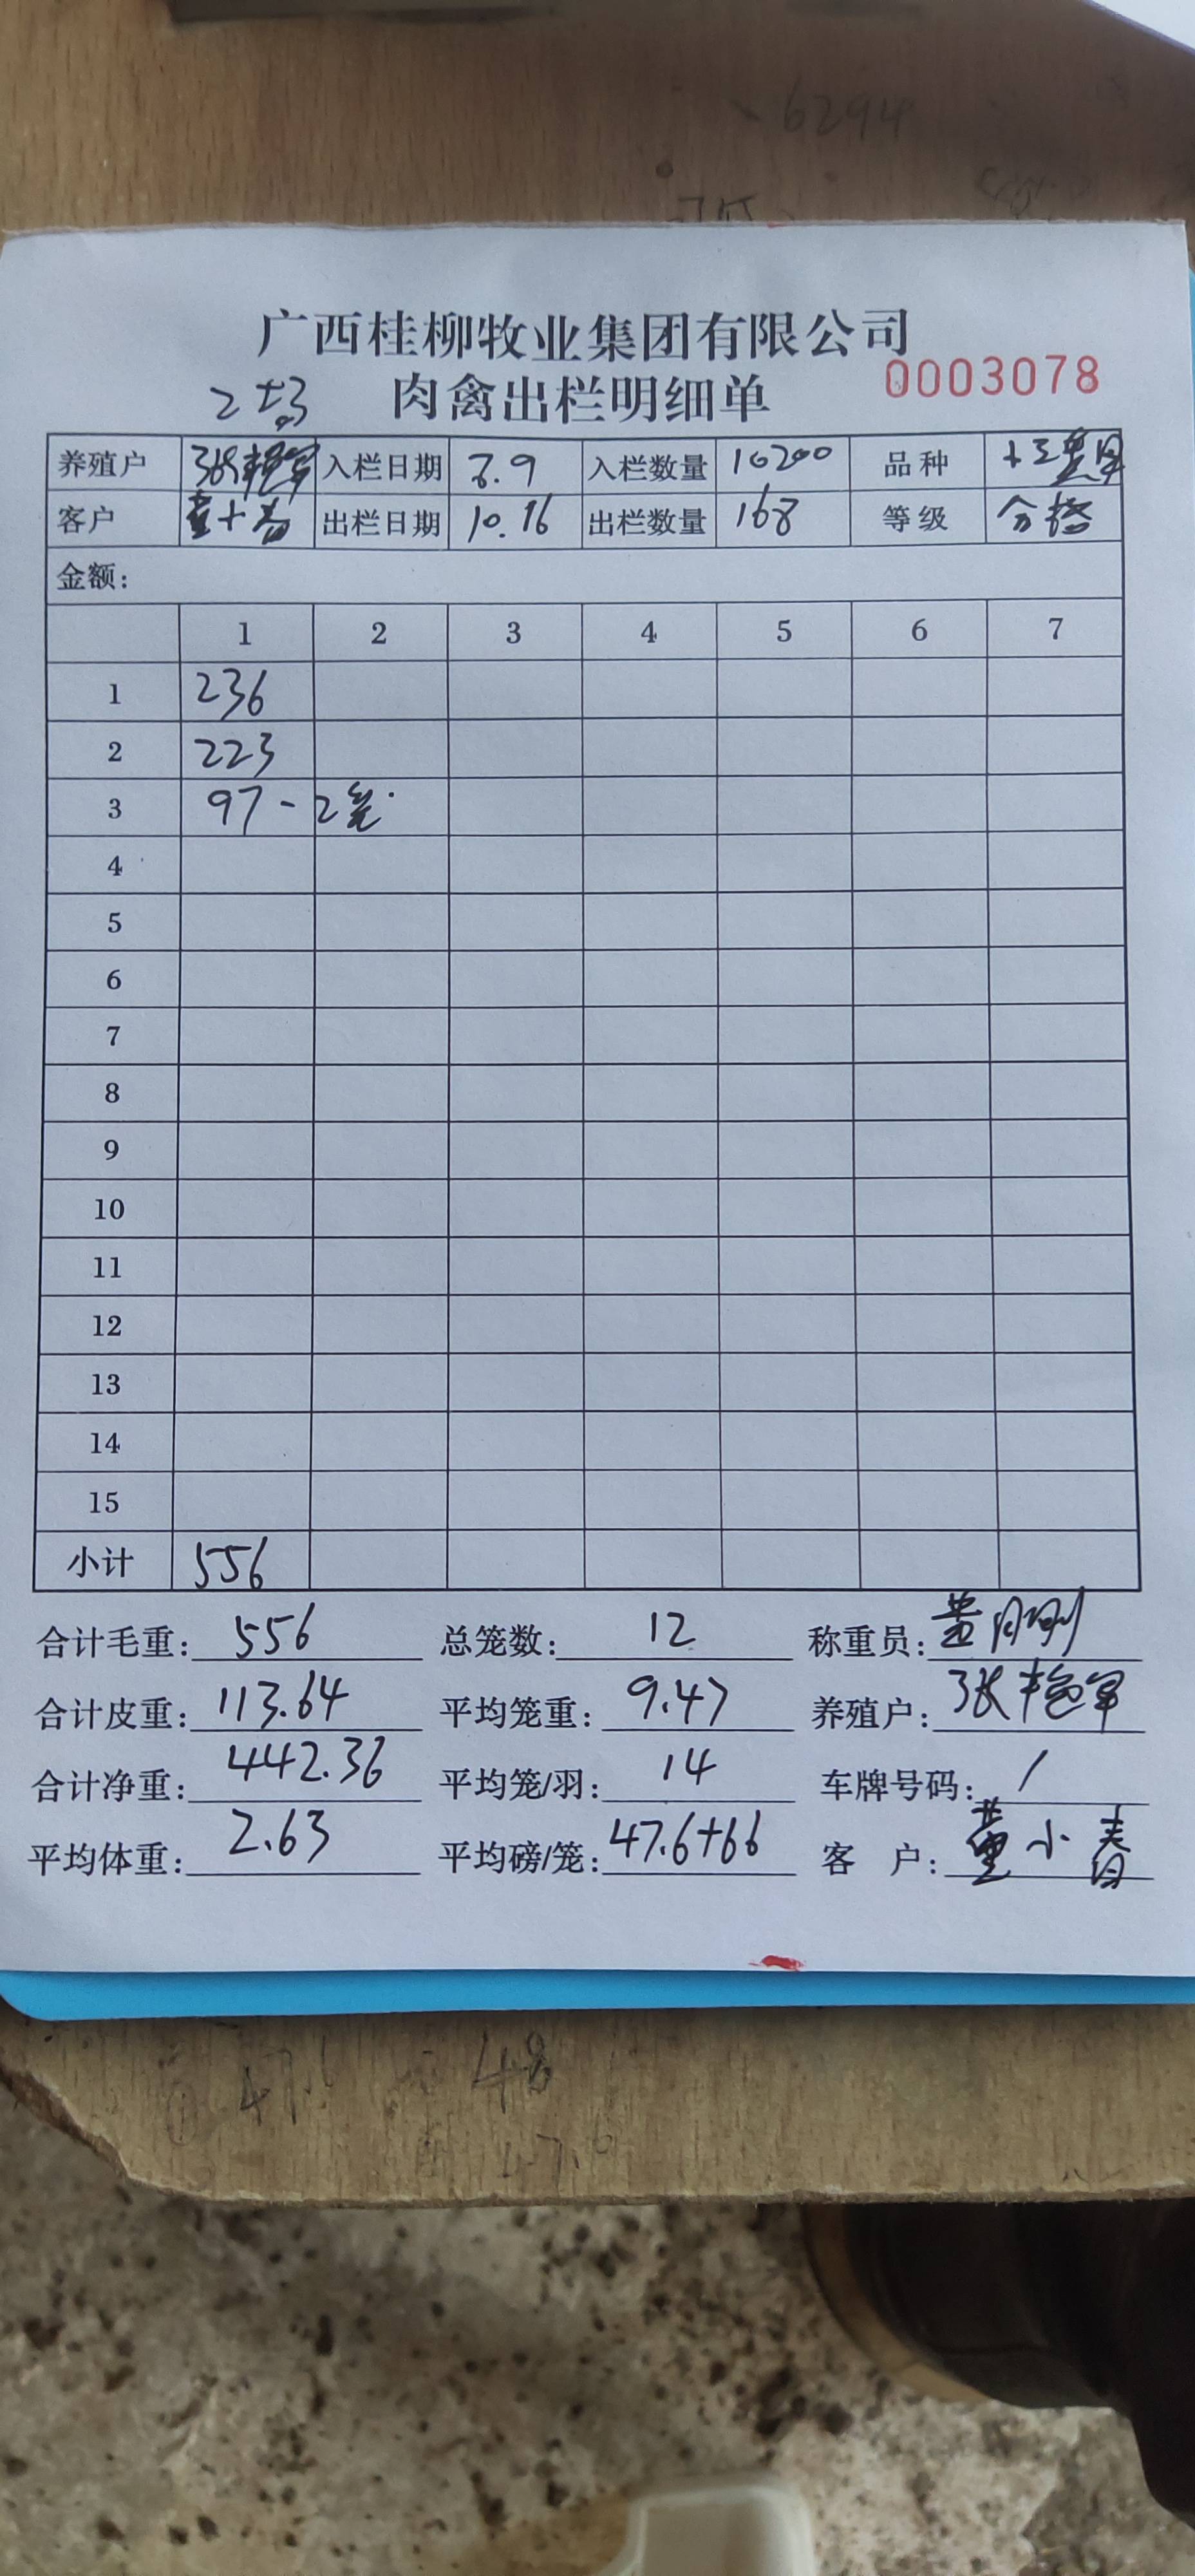 6294
广西桂柳牧业集团有限公司
肉禽出栏明细单 0003078
养殖户 入栏日期 入栏数量 10200 品种
客户 出栏日期 10.16 出栏数量 168 等级 合格
金额:
1 2 3 4 5 6 7
1 236
2 223
3 97-2笼
4
5
6
7
8
9
10
11
12
13
14
15
小计 556
合计毛重: 556 总笼数: 12 称重员:
合计皮重: 113.64 平均笼重: 9.47 养殖户: 张艳军
合计净重: 442.36 平均笼/羽: 14 车牌号码: /
平均体重: 2.63 平均磅/笼: 47.6+66 客 户: 董小春
48